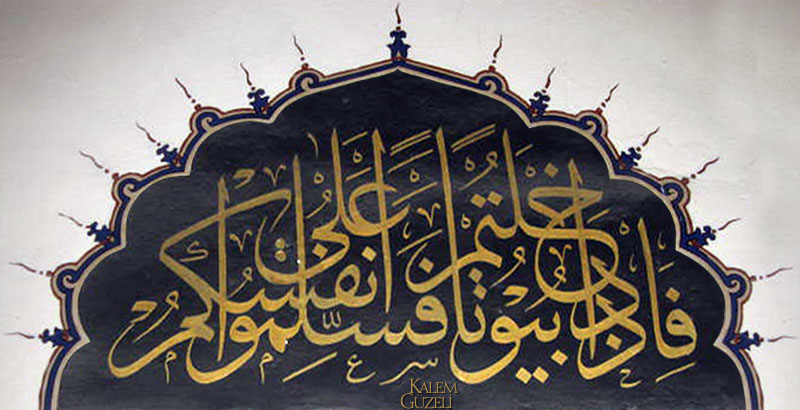 فَاِذَا دَخَلْتُمْ بُيُوتًا فَسَلِّمُوا عَلٰٓى اَنْفُسِكُمْ
KALEM
GÜZELİ